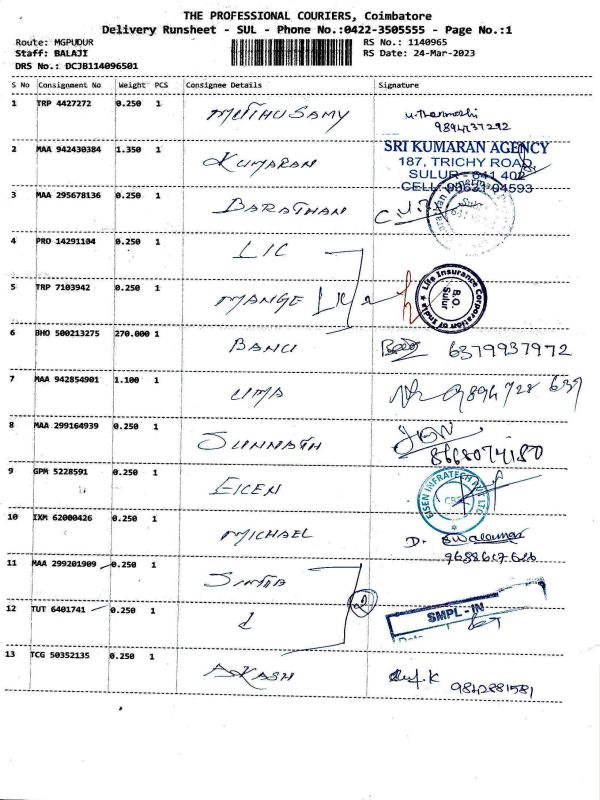 THE PROFESSIONAL COURIERS, Coimbatore
Delivery Runsheet - SUL - Phone No.:0422-3505555 - Page No.:1
Route: MGPUDUR RS No.: 1140965
Staff: BALAJI RS Date: 24-Mar-2023
DRS No.: DCJB114096501
S No Consignment No Weight PCS Consignee Details Signature
1 TRP 4427272 0.250 1 MUTHUSAMY
2 MAA 942430384 1.350 1 KUMARAN
SRI KUMARAN AGENCY
187, TRICHY ROAD
SULUR - 641 402
CELL: 04593
3 MAA 295678136 0.250 1 BARATHAN
4 PRO 14291104 0.250 1 LIC
5 TRP 7103942 0.250 1 MANGE
Life Insurance Corporation of India
B.O.
Sulur
6 BHO 500213275 270.000 1 BANU 6379937972
7 MAA 942854901 1.100 1 UMA
8 MAA 299164939 0.250 1
9 GPM 5228591 0.250 1 EICEN
EISEN INFRATECH PVT LTD
10 IXM 62000426 0.250 1 MICHAEL
11 MAA 299201909 0.250 1
12 TUT 6401741 0.250 1
SMPL-IN
13 TCG 50352135 0.250 1 AKASH 9842881581